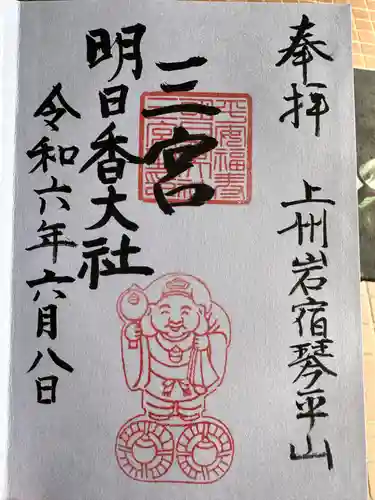 奉拝
上州岩宿琴平山
三宮
明日香大社
令和六年六月八日